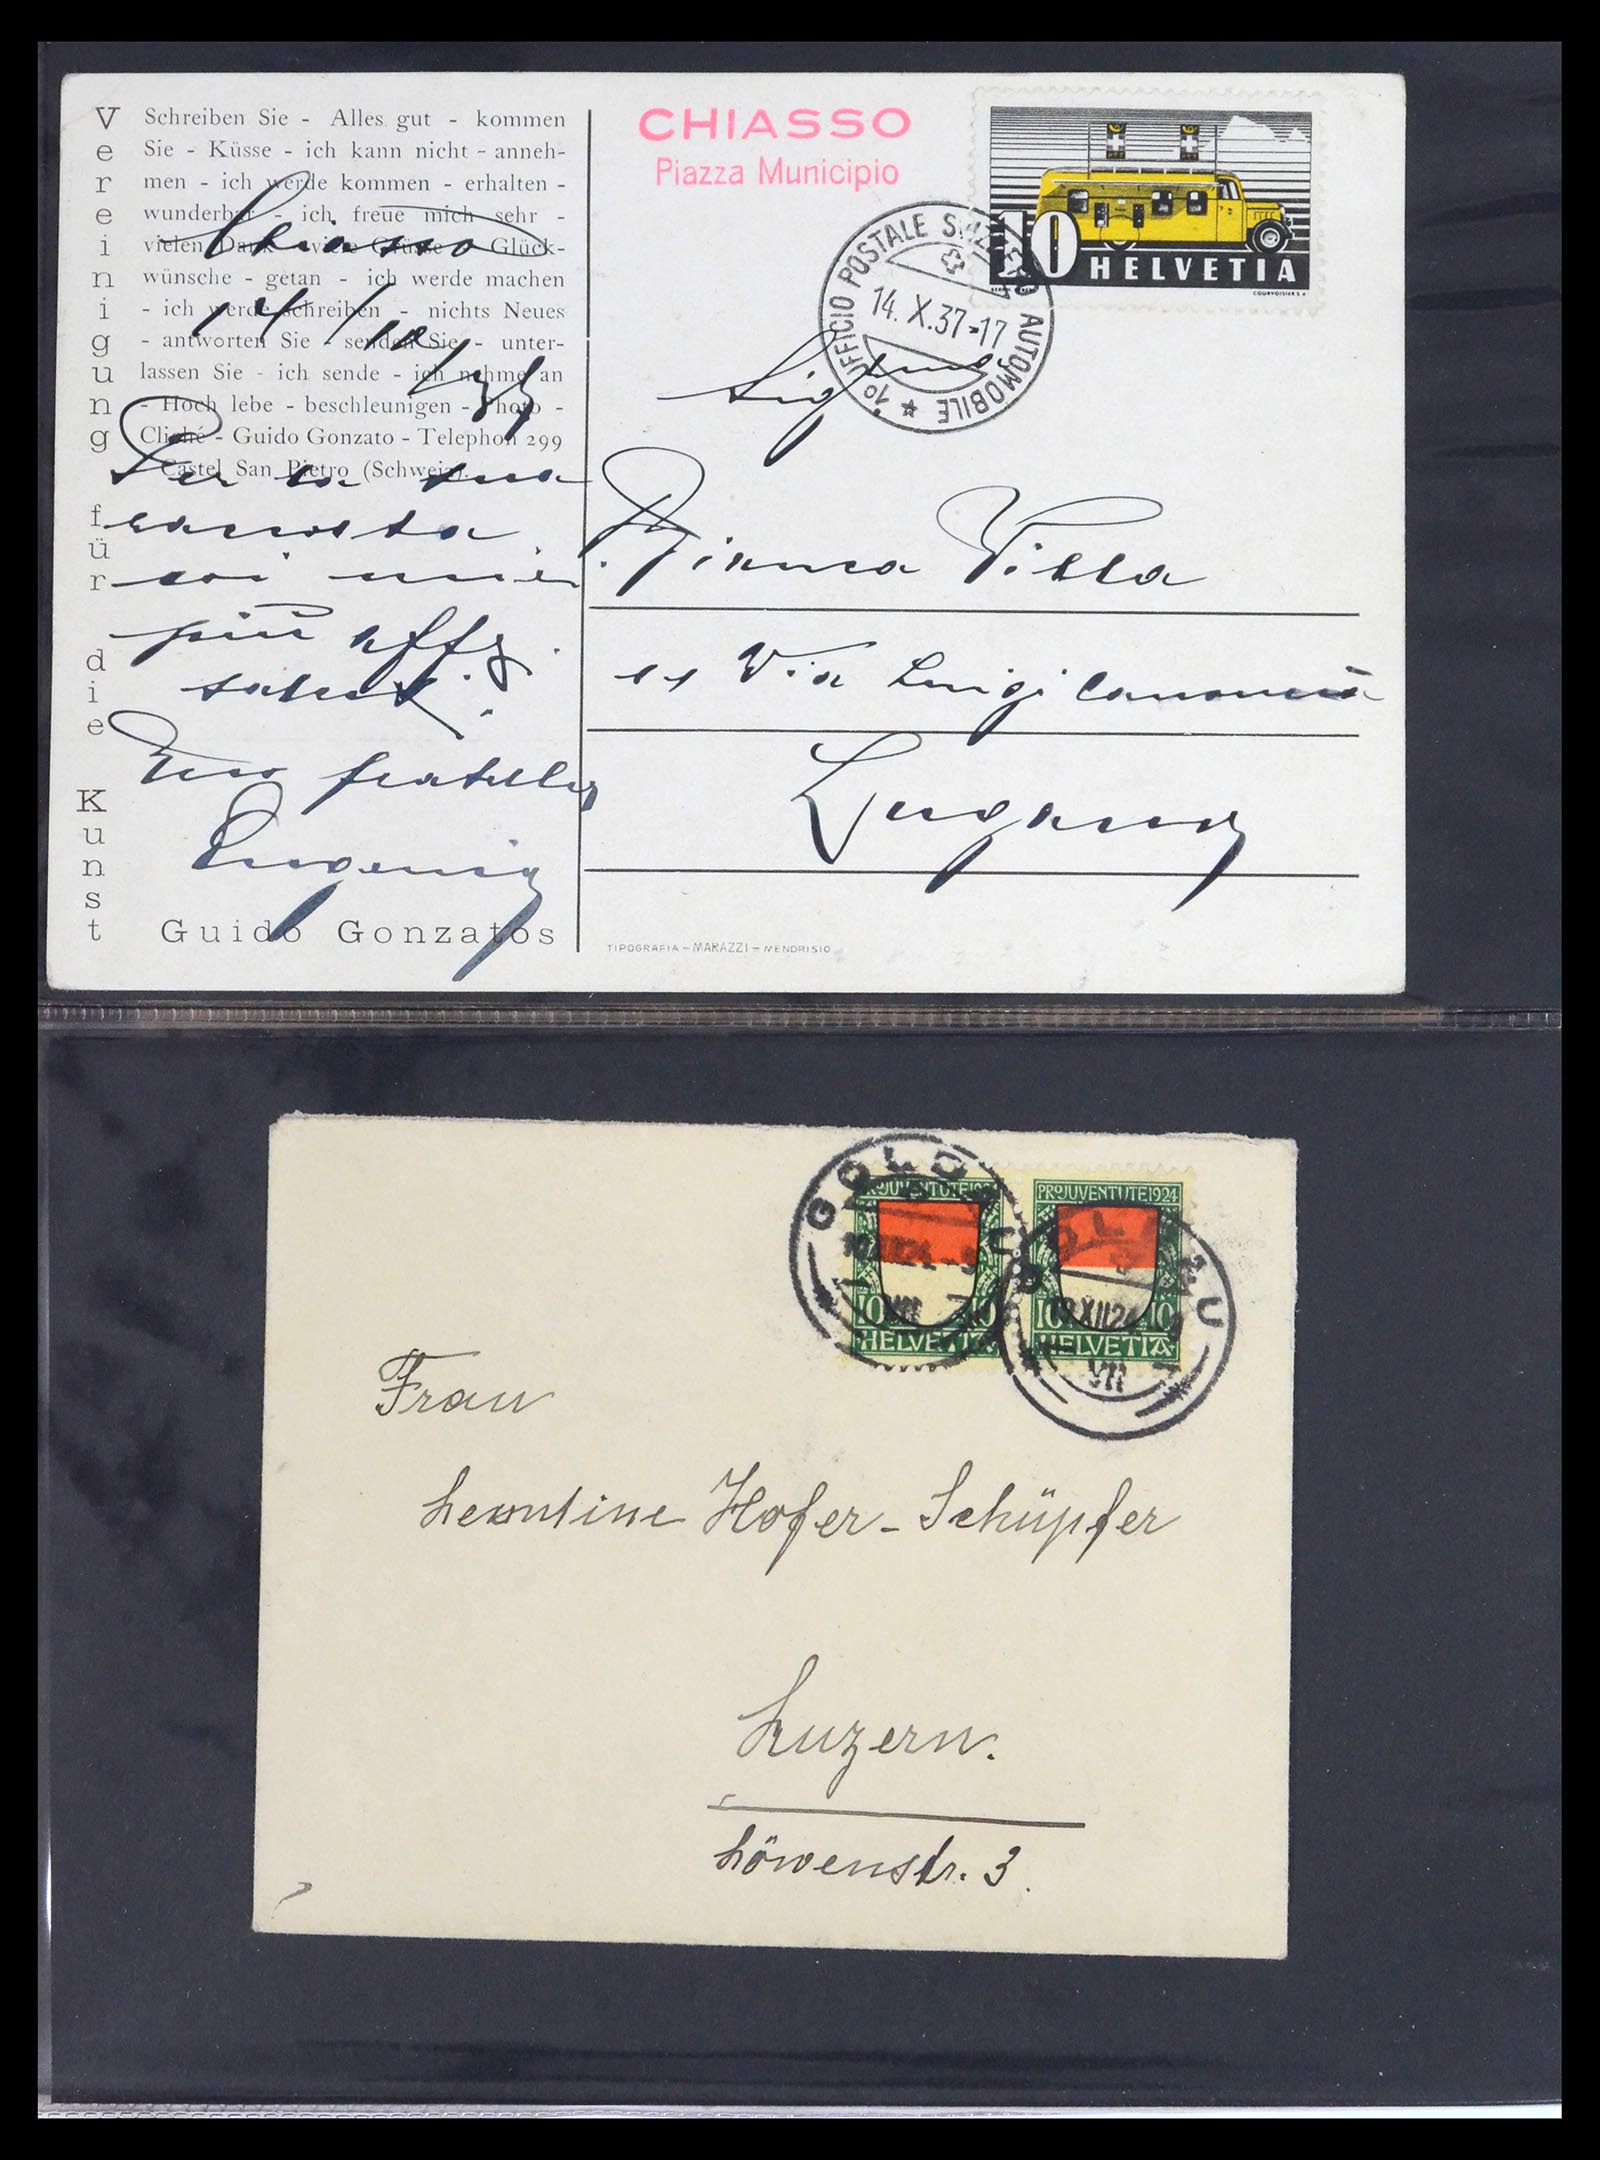 Vereinigung für die Kunst
Schreiben Sie - Alles gut - kommen
Sie - Küsse - ich kann nicht - anneh-
men - ich werde kommen - erhalten -
wunderbar - ich freue mich sehr -
vielen Dank - viele Grüsse - Glück-
wünsche - getan - ich werde machen
- ich werde schreiben - nichts Neues
- antworten Sie - senden Sie - unter-
lassen Sie - ich sende - ich nehme an
- Hoch lebe - beschleunigen - Photo -
Cliché - Guido Gonzato - Telephon 299
Castel San Pietro (Schweiz).
Guido Gonzatos
Chiasso
14/10
Per la tua
più aff.
Tuo fratello
Eugenio
CHIASSO
Piazza Municipio
10
HELVETIA
COURVOISIER S.A.
1o UFFICIO POSTALE SVIZZERO AUTOMOBILE
14.X.37-17
Bianca Villa
11 Via Luigi Canonica
Lugano
TIPOGRAFIA - MARAZZI - MENDRISIO
PRO JUVENTUTE 1924
10 10
HELVETIA
PRO JUVENTUTE 1924
10 10
HELVETIA
GOLDAU
10.XII.24.-9
VII
GOLDAU
10.XII.24
VII
Frau
Leontine Hofer-Schüpfer
Luzern.
Löwenstr. 3.